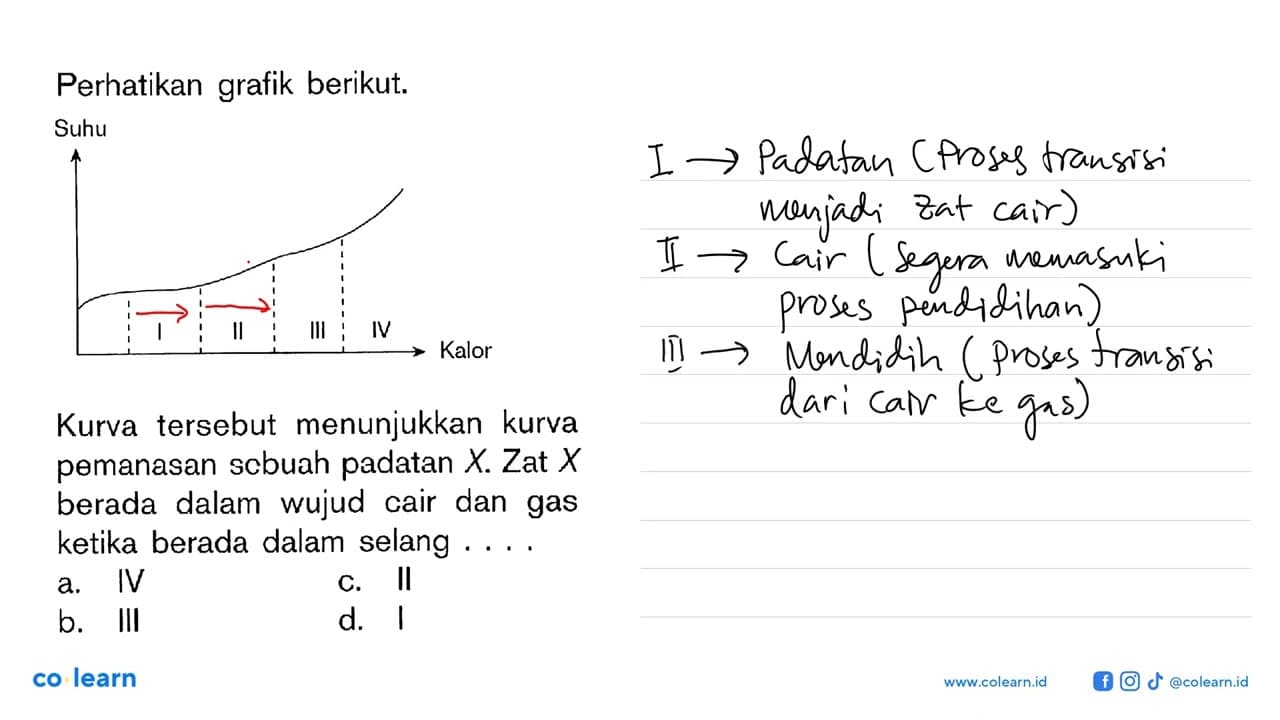 Perhatikan grafik berikut.
Suhu
I
II
III
IV
Kalor
Kurva tersebut menunjukkan kurva
pemanasan scbuah padatan X. Zat X
berada dalam wujud cair dan gas
ketika berada dalam selang . . . .
a. IV
c. II
b. III
d. I
I → Padatan (Proses transisi
menjadi zat cair)
II → Cair (segera memasuki
proses pendidihan)
III → Mendidih (proses transisi
dari cair ke gas)
co learn
www.colearn.id
@colearn.id